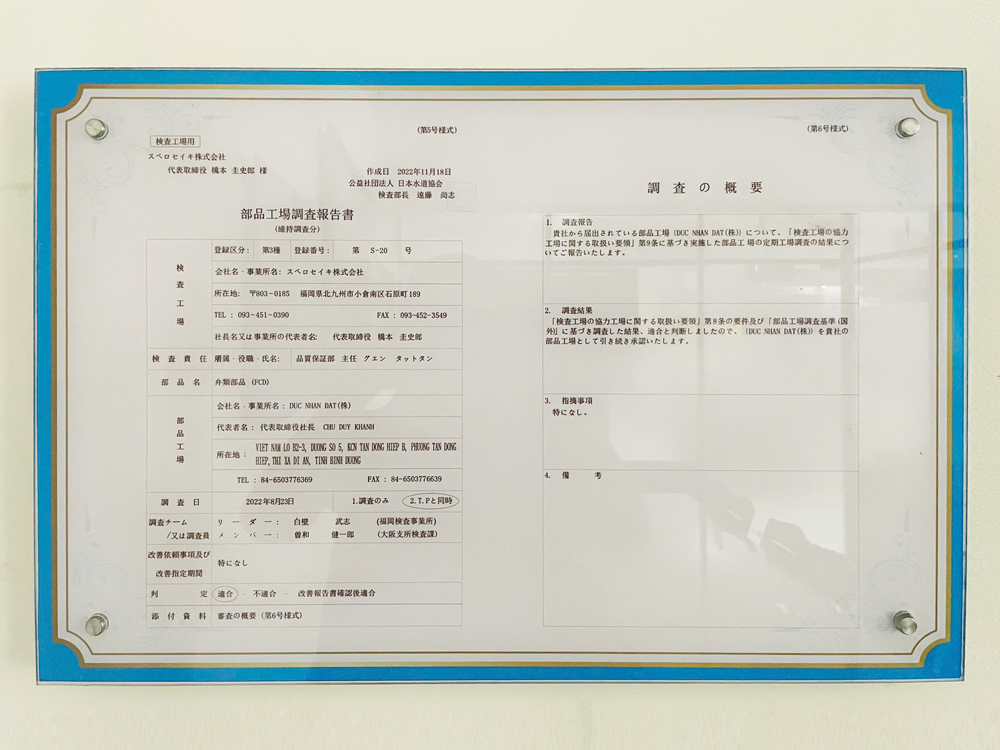 (第5号様式)
検査工場用
スペロセイキ株式会社
代表取締役 橋本 圭史郎 様
作成日 2022年11月18日
公益社団法人 日本水道協会
検査部長 遠藤 尚志
部品工場調査報告書
(維持調査分)
検査工場
登録区分: 第3種 登録番号: 第 S-20 号
会社名・事業所名: スペロセイキ株式会社
所在地: 〒803-0185 福岡県北九州市小倉南区石原町189
TEL : 093-451-0390 FAX : 093-452-3549
社長名又は事業所の代表者名: 代表取締役 橋本 圭史郎
検査責任 所属・役職・氏名: 品質保証部 主任 グエン タットタン
部品名 弁類部品 (FCD)
部品工場
会社名・事業所名: DUC NHAN DAT(株)
代表者名: 代表取締役社長 CHU DUY KHANH
所在地: VIET NAM LO B2-3, DUONG SO 5, KCN TAN DONG HIEP B, PHUONG TAN DONG
HIEP, THI XA DI AN, TINH BINH DUONG
TEL : 84-6503776369 FAX : 84-6503776639
調査日 2022年8月23日 1.調査のみ 2.T.Pと同時
調査チーム リーダー: 白壁 武志 (福岡検査事業所)
/又は調査員 メンバー: 曽和 健一郎 (大阪支所検査課)
改善依頼事項及び
改善指定期間
特になし
判定 適合 ・ 不適合 ・ 改善報告書確認後適合
添付資料 審査の概要 (第6号様式)
(第6号様式)
調査の概要
1. 調査報告
貴社から届出されている部品工場 (DUC NHAN DAT(株)) について、「検査工場の協力
工場に関する取扱い要領」第9条に基づき実施した部品工場の定期工場調査の結果につ
いてご報告いたします。
2. 調査結果
「検査工場の協力工場に関する取扱い要領」第8条の要件及び「部品工場調査基準(国
外)」に基づき調査した結果、適合と判断しましたので、(DUC NHAN DAT(株)) を貴社の
部品工場として引き続き承認いたします。
3. 指摘事項
特になし。
4. 備考